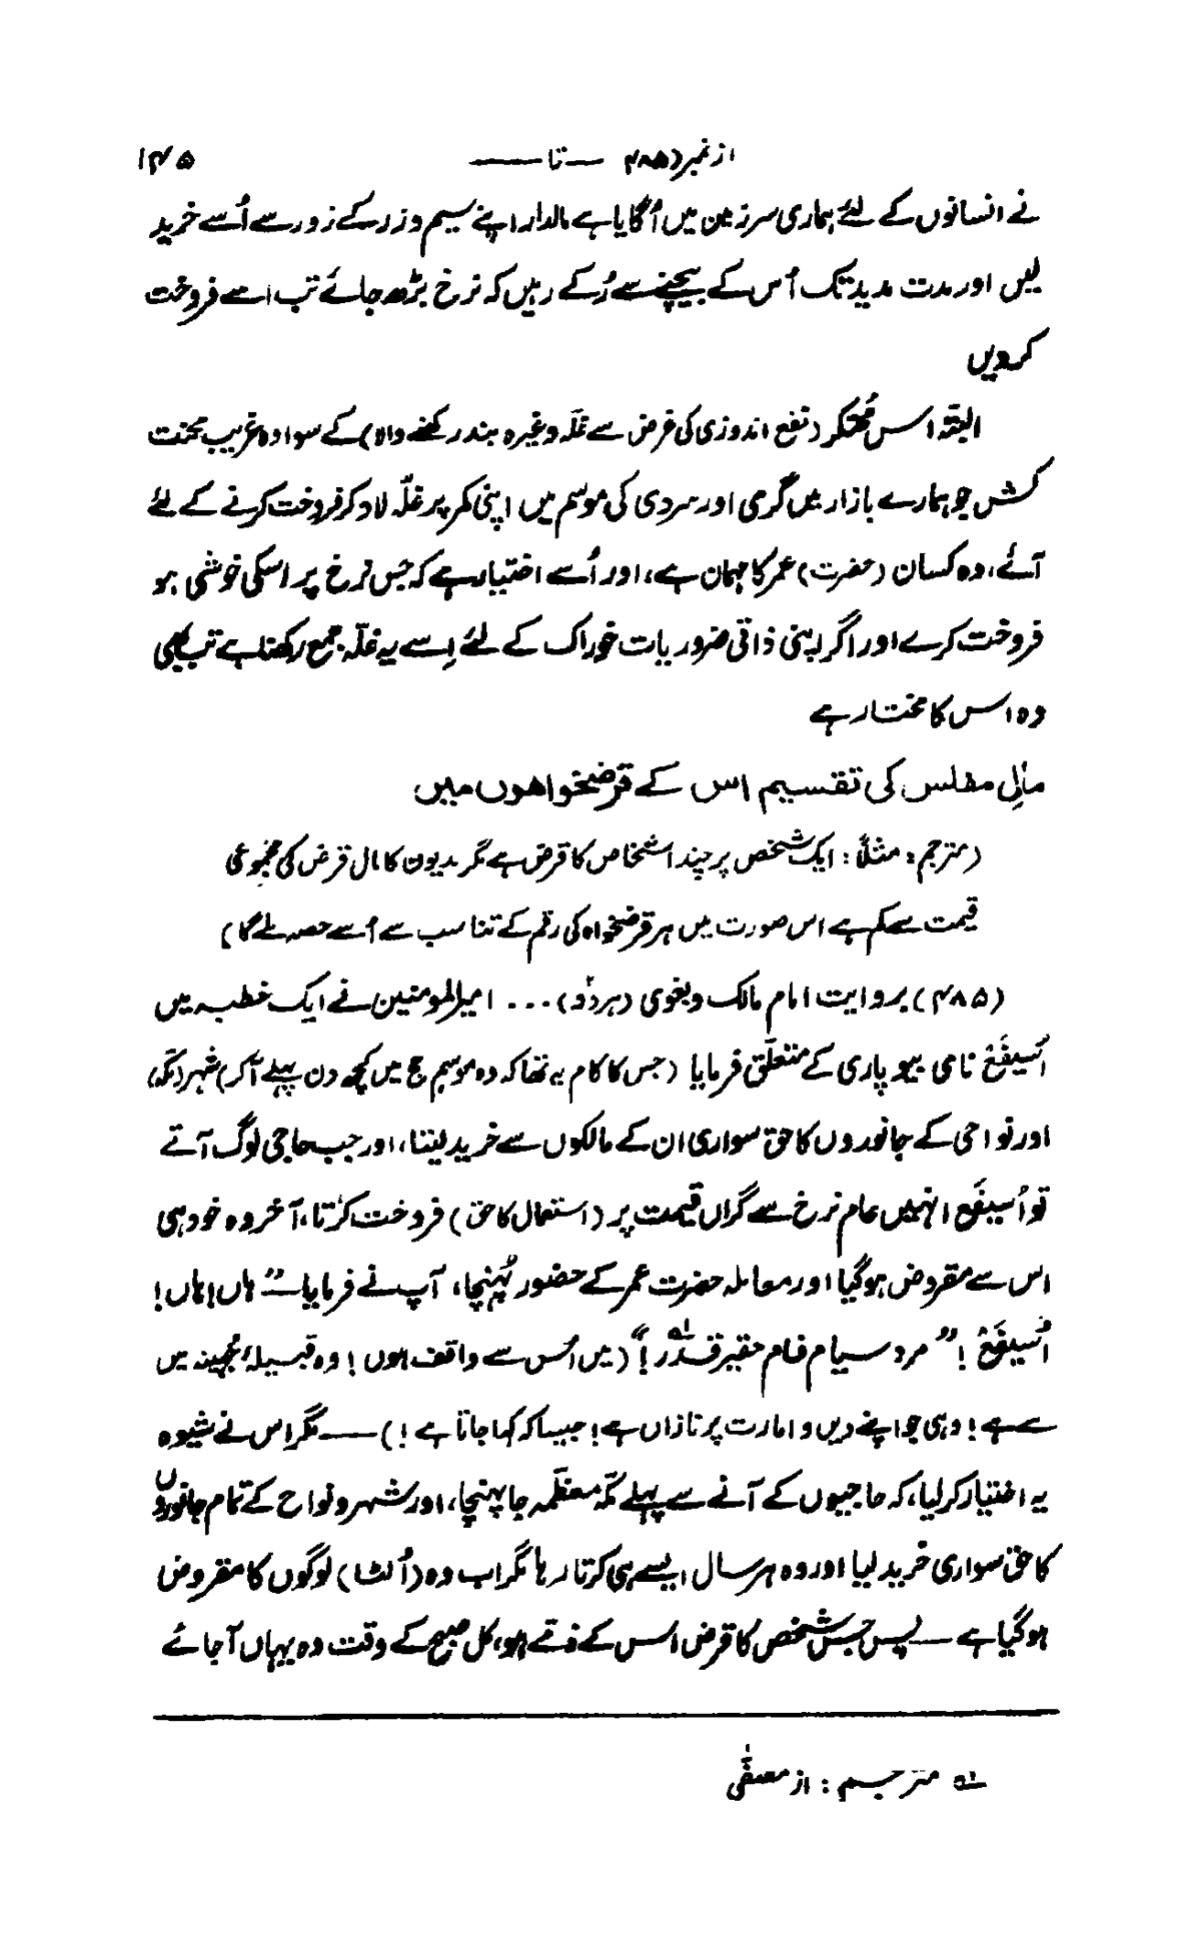 از نمبر (۴۸۵ — تا —— ۱۴۵
نے انسانوں کے لئے ہماری سرزمین میں اُگایا ہے مالدار اپنے سیم و زر کے زور سے اُسے خرید
لیں اور مدت مدید تک اُس کے بیچنے سے رُکے رہیں کہ نرخ بڑھ جائے تب اسے فروخت
کر دیں
البتہ اس مُحتکر (نفع اندوزی کی غرض سے غلّہ وغیرہ بند رکھنے والا) کے سوا وہ غریب محنت
کش جو ہمارے بازار میں گرمی اور سردی کی موسم میں اپنی کمر پر غلّہ لاد کر فروخت کرنے کے لئے
آئے، وہ کسان (حضرت) عمر کا مہمان ہے، اور اُسے اختیار ہے کہ جس نرخ پر اسکی خوشی ہو
فروخت کرے اور اگر اپنی ذاتی ضروریات خوراک کے لئے اِسے یہ غلّہ جمع رکھنا ہے تب بھی
وہ اس کا مختار ہے
مالِ مفلس کی تقسیم اس کے قرضخواھوں میں
(مترجم: مثلاً: ایک شخص پر چند اشخاص کا قرض ہے مگر مدیون کا مال قرض کی مجموعی
قیمت سے کم ہے اس صورت میں ہر قرضخواہ کی رقم کے تناسب سے اُسے حصہ ملے گا)
(۴۸۵) بروایت امام مالک و بغوی (ہردُو) ... امیرالمومنین نے ایک خطبہ میں
اُسَیفَعْ نامی بیوپاری کے متعلّق فرمایا (جس کا کام یہ تھا کہ وہ موسم حج میں کچھ دن پہلے آکر) شہر (مکہ)
اور نواحی کے جانوروں کا حق سواری ان کے مالکوں سے خرید لیتا، اور جب حاجی لوگ آتے
تو اُسیفَع انہیں عام نرخ سے گراں قیمت پر (استعمال کا حق) فروخت کرتا، آخر وہ خود ہی
اس سے مقروض ہوگیا اور معاملہ حضرت عمر کے حضور پُہنچا، آپ نے فرمایا — "ہاں! ہاں!
اُسَیفَعْ! "مرد سیام فام حقیر قدْر!" لہ (میں اُس سے واقف ہوں! وہ قبیلۂ جُہینہ میں
سے ہے! وہی جو اپنے دیں و امارت پر نازاں ہے! جیسا کہ کہا جاتا ہے!) — مگر اس نے شیوہ
یہ اختیار کر لیا، کہ حاجیوں کے آنے سے پہلے مکّہ معظّمہ جا پہنچا، اور شہر و نواح کے تمام جانوروں
کا حق سواری خرید لیا اور وہ ہر سال ایسے ہی کرتا رہا مگر اب وہ (اُلٹا) لوگوں کا مقروض
ہوگیا ہے — پس جس شخص کا قرض اس کے ذمّے ہو، کل صبح کے وقت وہ یہاں آ جائے
لہ مترجم: از مصفّٰی